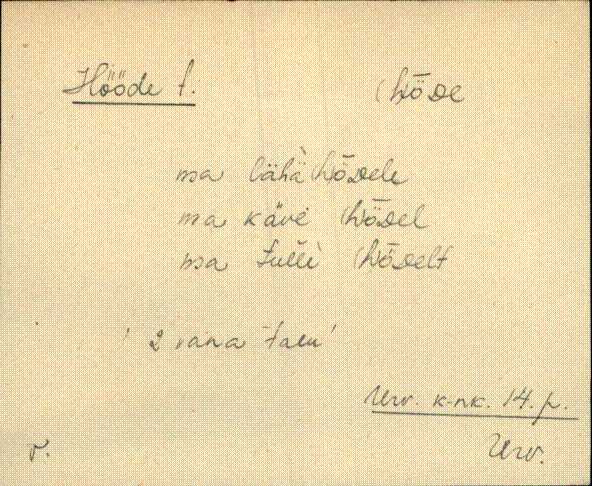 Hööde t. (hȫde
ma lähä̀ (hȫdele
ma kävè (hȫdel
ma tullì (hȫdelt
' 2 vana talu '
Urv. k-nk. 14. p.
r. Urv.